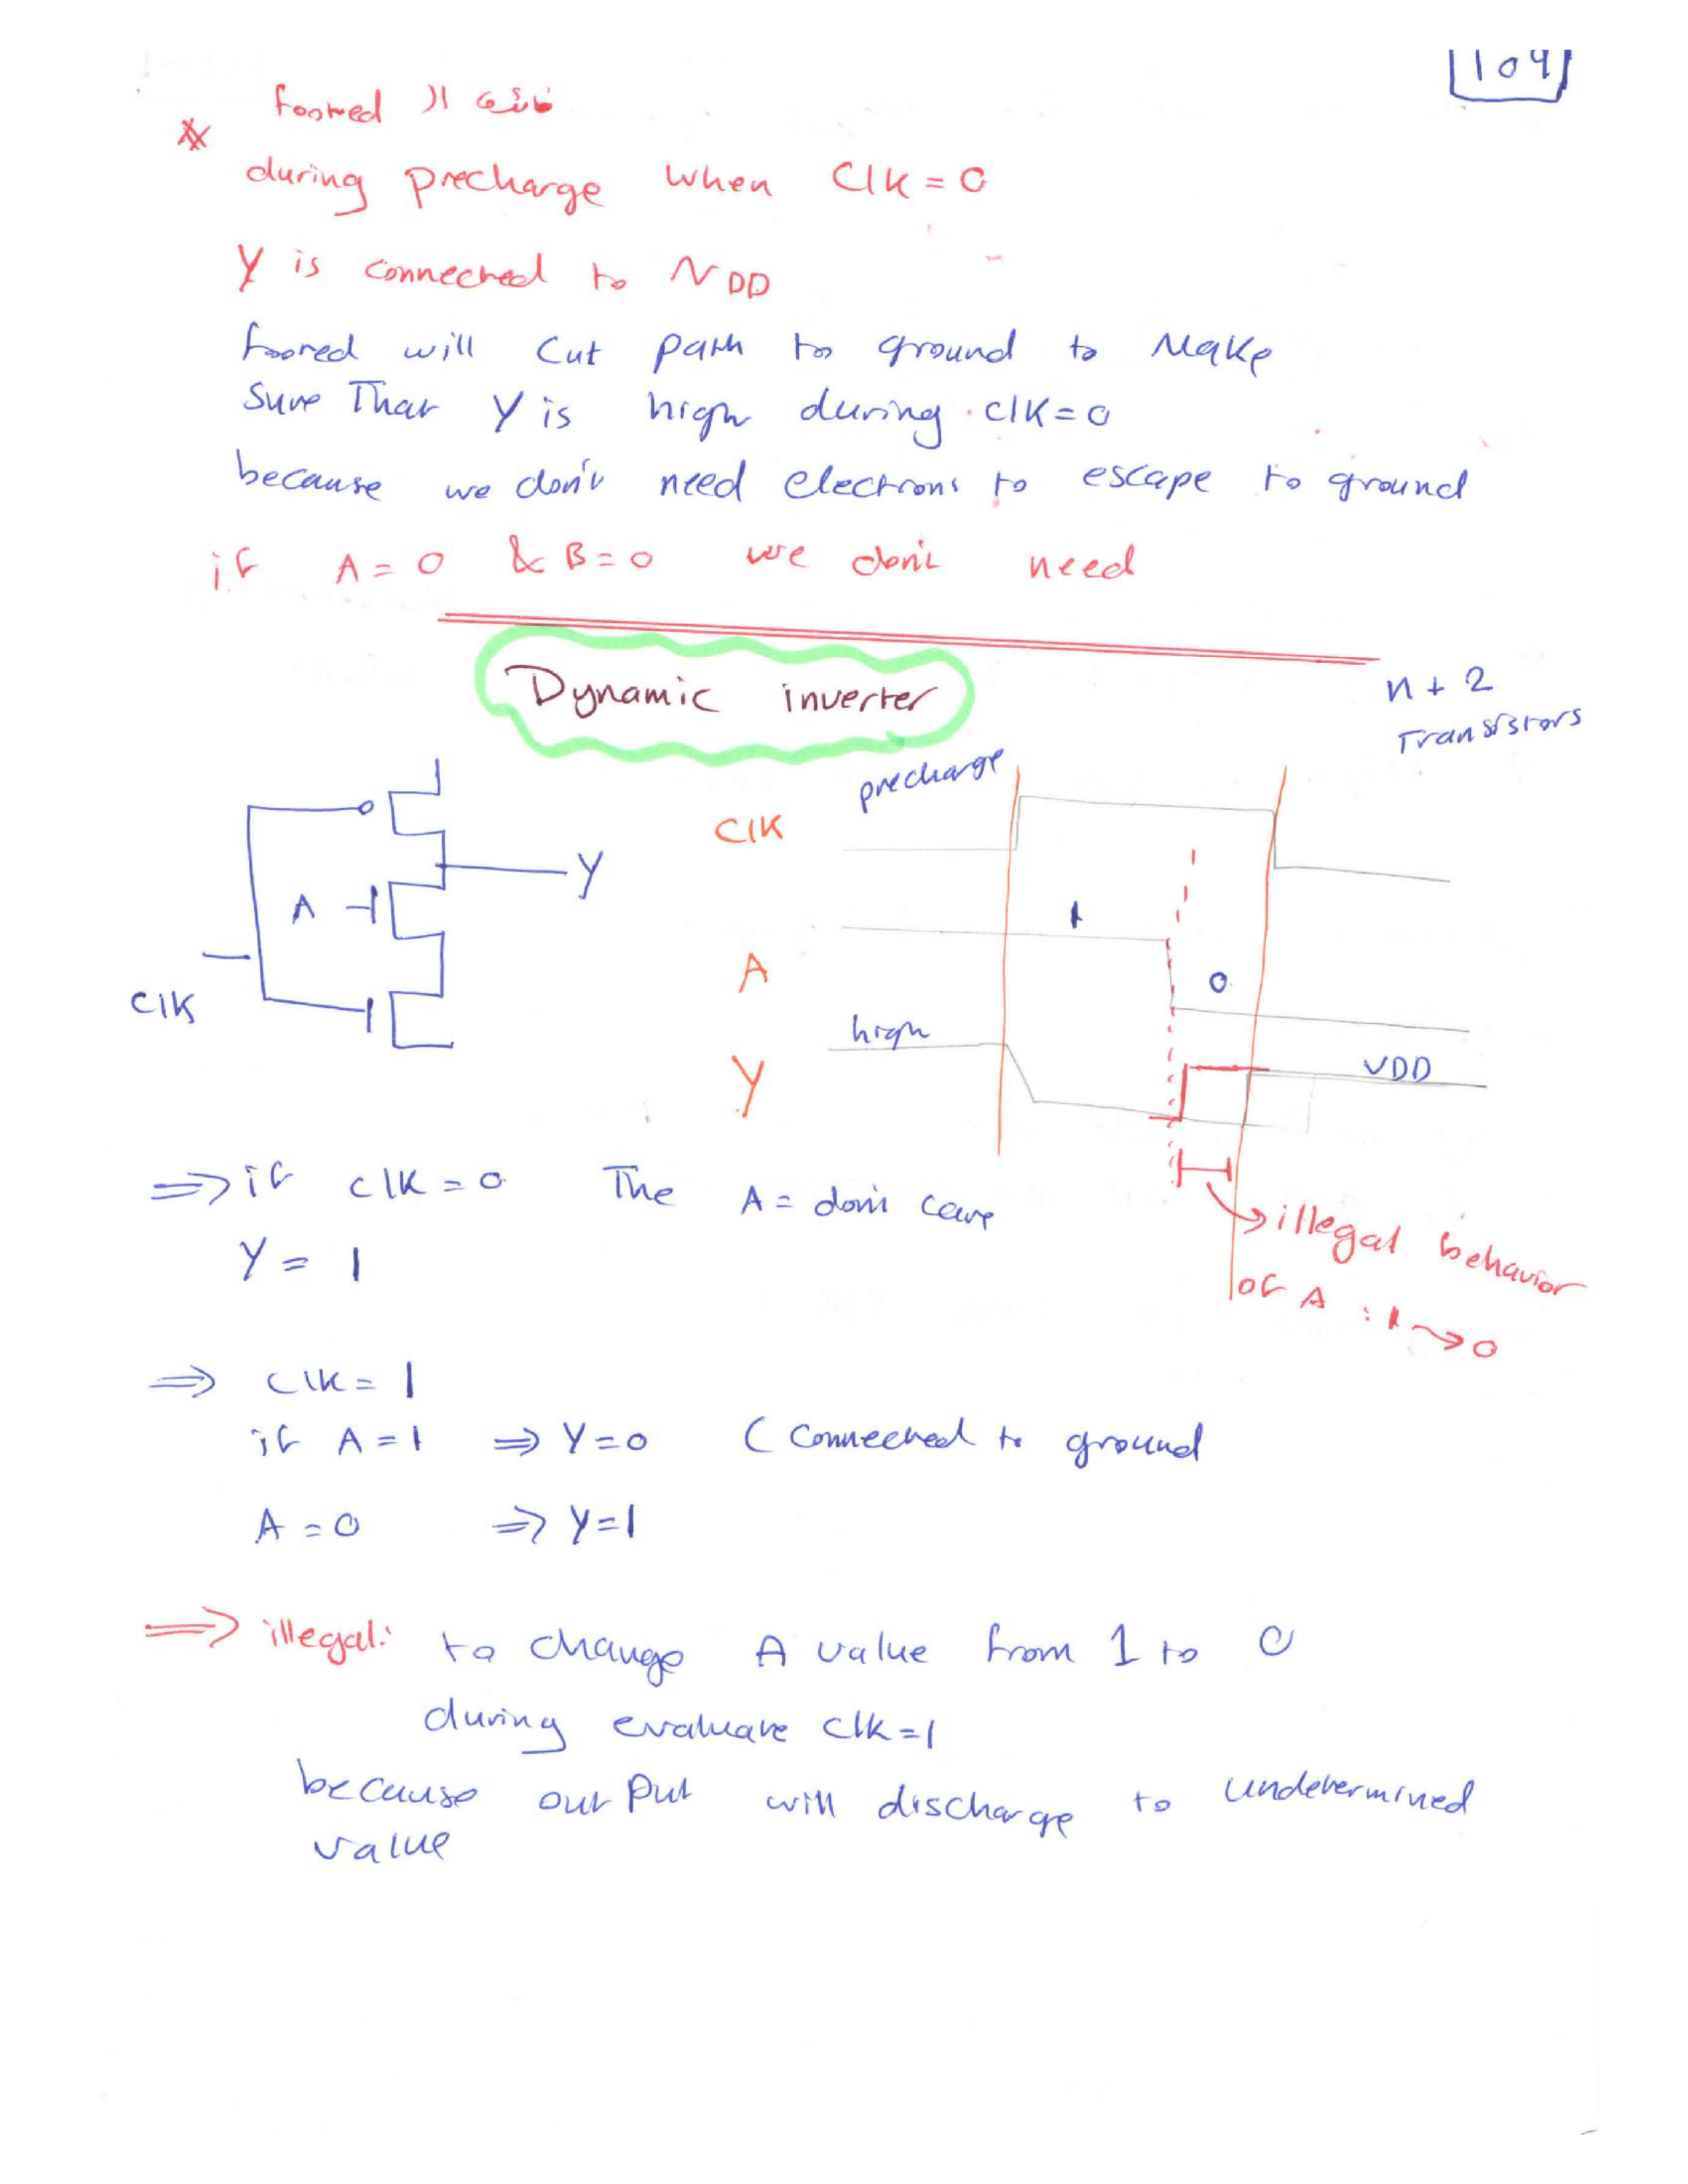 109
footed ال فائدة
* during precharge when Clk = 0
Y is connected to VDD
footed will cut path to ground to Make
sure That Y is high during clk = 0
because we don't need electrons to escape to ground
if A = 0 & B = 0 we don't need
Dynamic inverter
n + 2
Transistors
precharge
Clk
Y
A
1
A
0
Clk
high
Y
VDD
⇒ if clk = 0 The A = don't care
Y = 1
illegal behavior
of A : 1 → 0
⇒ Clk = 1
if A = 1 ⇒ Y = 0 ( Connected to ground
A = 0 ⇒ Y = 1
⇒ illegal: to change A value from 1 to 0
during evaluate clk = 1
because output will discharge to undetermined
value